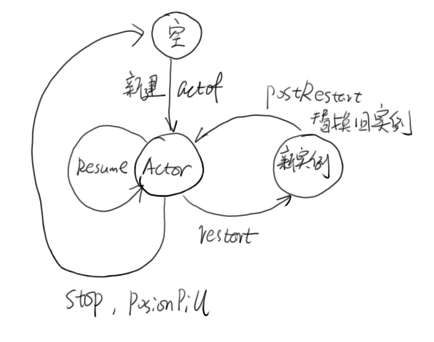 空
新建 actof
postRestart
替换旧实例
Resume
Actor
新实例
restart
stop, PosionPill